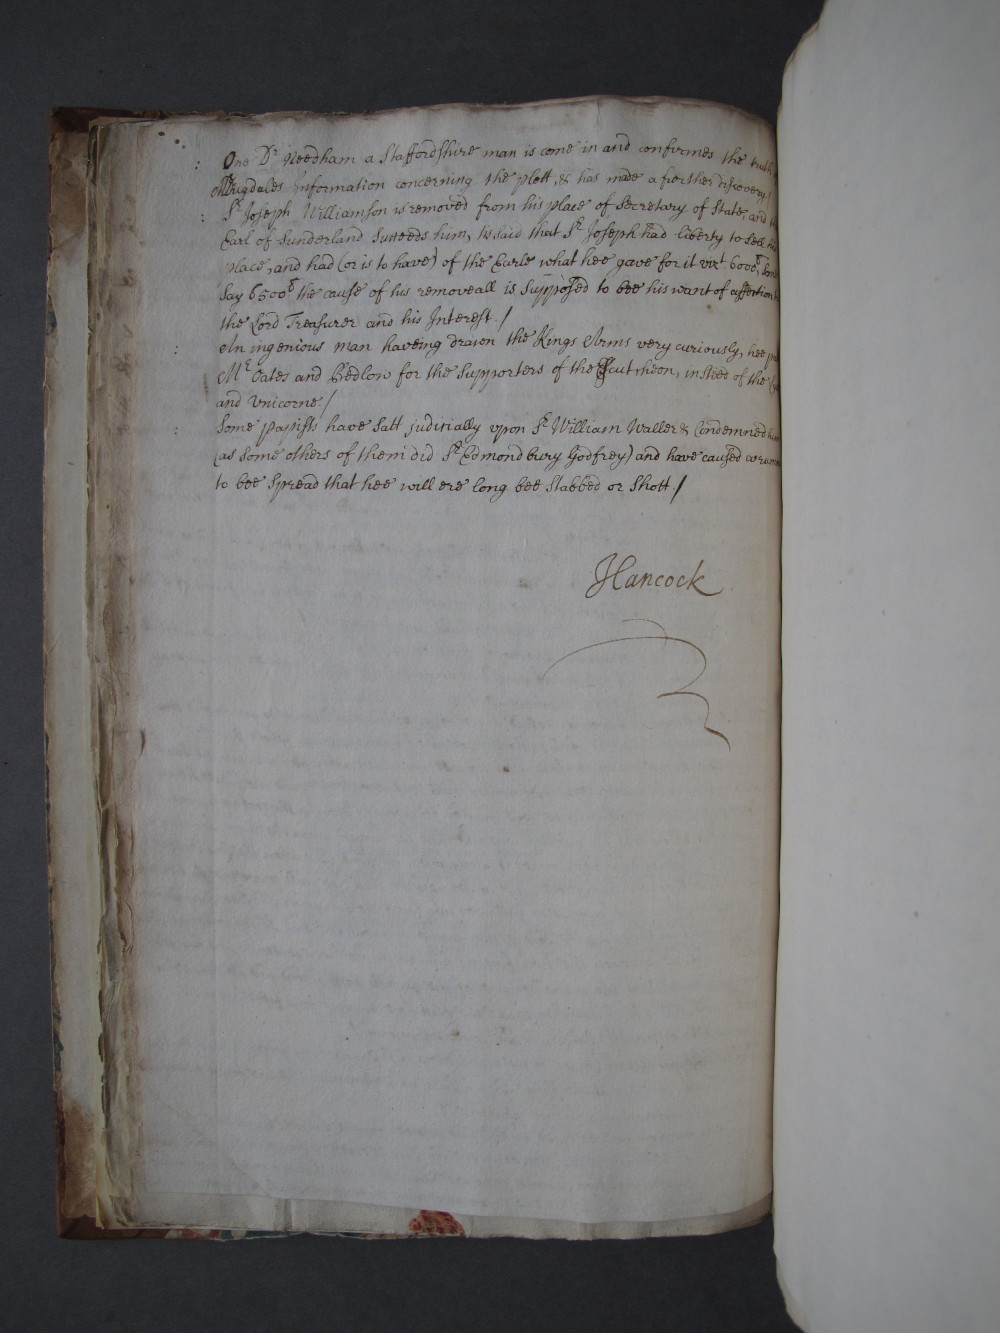 One Dr Needham a Staffordshire man is come in and confirmes the truth
Mr Dugdales Information concerning the plott, & has made a further discovery /
Sr Joseph Williamson is removed from his place of Secretary of State and the
Earl of Sunderland Suceeds him, tis said that Sr Joseph had liberty to sell his
place, and had (or is to have) of the Earle what hee gave for it vizt 6000l, Some
Say 6500l the cause of his removeall is Supposed to bee his want of affection to
the Lord Treasurer and his Interest. /
An ingenious man haveing drawn the Kings Arms very curiously, hee
Mr Oates and Bedlow for the Supporters of the Escutcheon, insteed of the
and Unicorne /
Some papists have Satt juditially upon Sr William Waller & Condemned him
(as some others of them did Sr Edmondbury Godfrey) and have caused a
to bee Spread that hee will ere long bee Stabbed or Shott /
Hancock